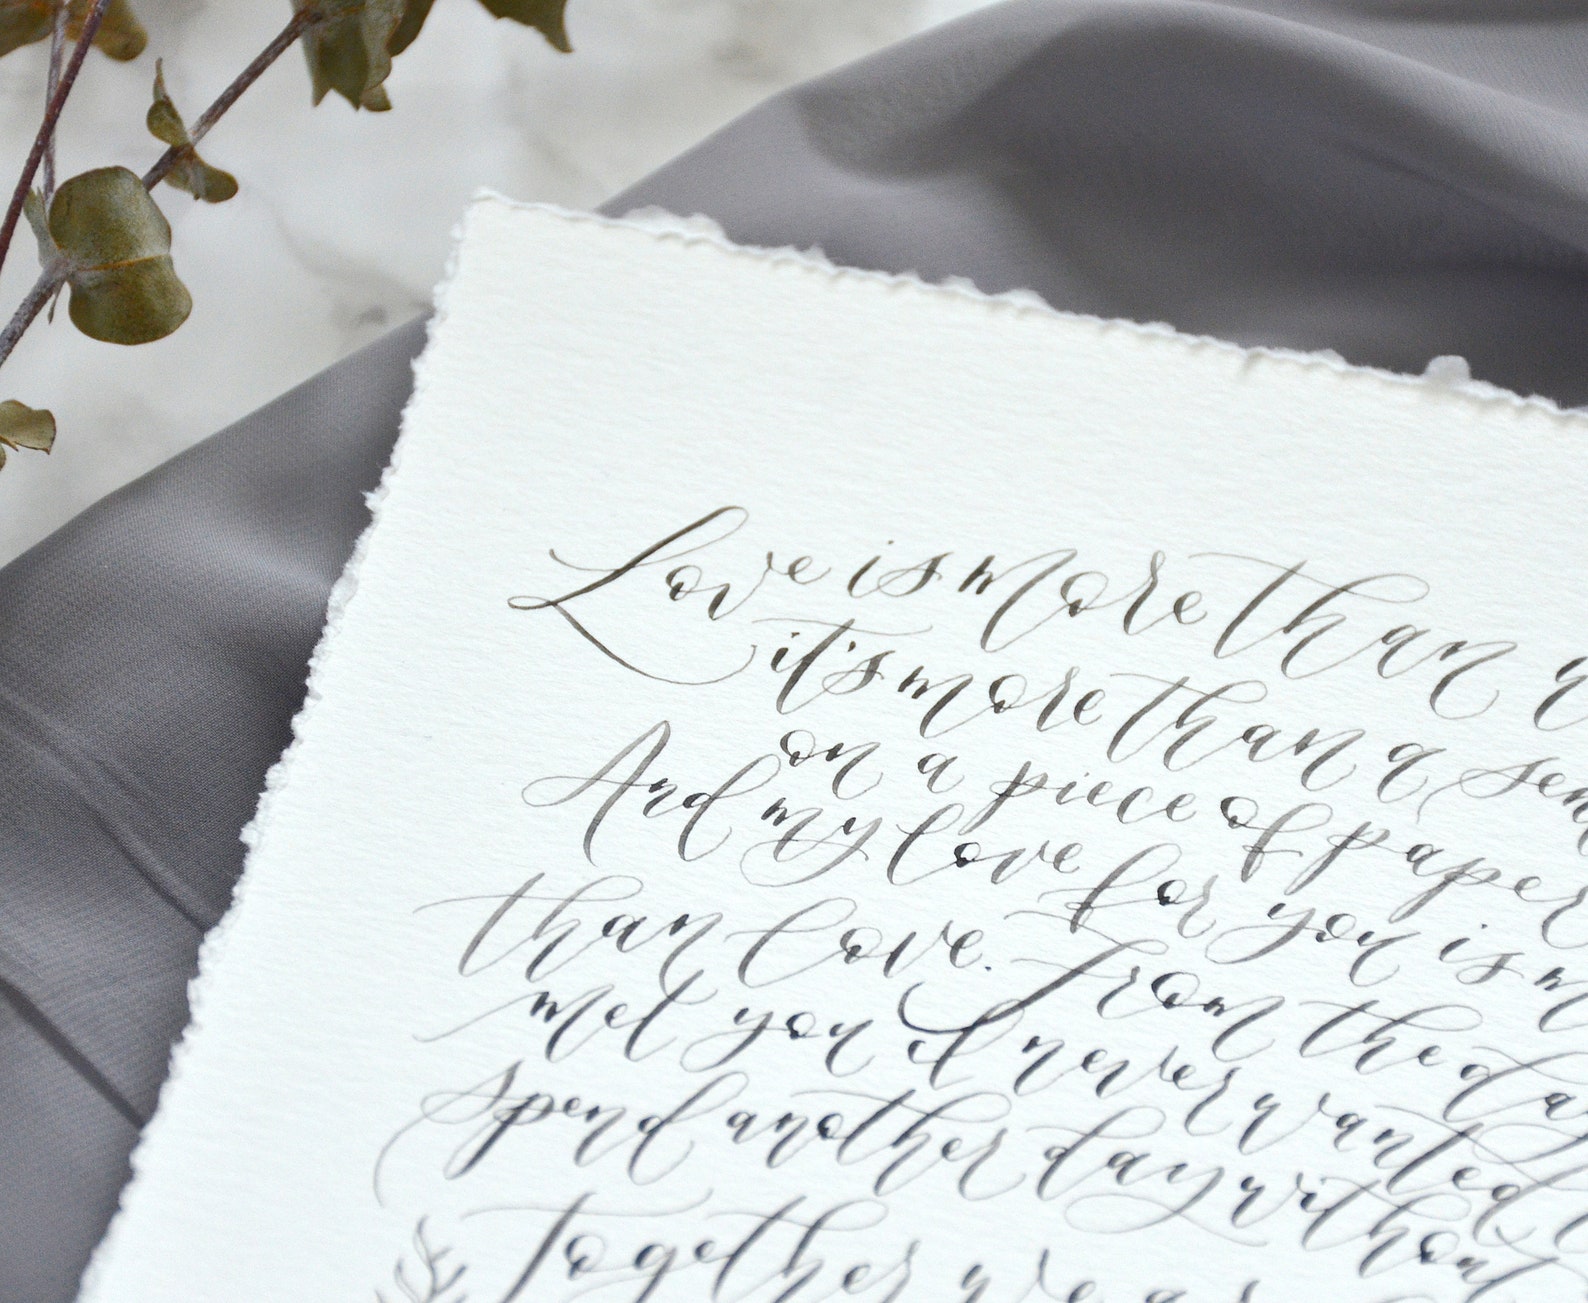 Love is more than a
it's more than a
on a piece of paper
And my love for you is
than love. From the day
met you I never wanted
spend another day without
Together we